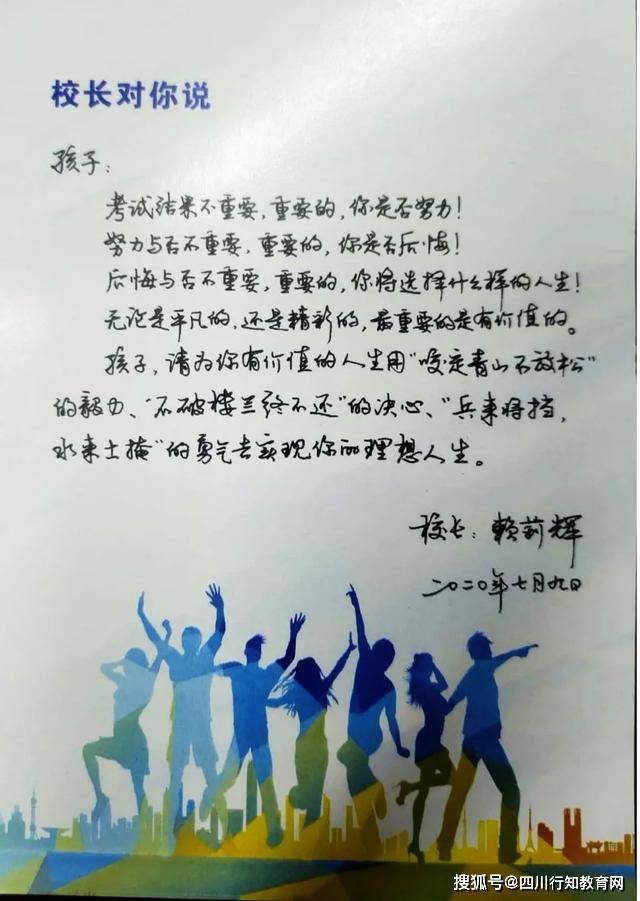 校长对你说
孩子：
考试结果不重要，重要的，你是否努力！
努力与否不重要，重要的，你是否后悔！
后悔与否不重要，重要的，你将选择什么样的人生！
无论是平凡的，还是精彩的，最重要的是有价值的。
孩子，请为你有价值的人生用“咬定青山不放松”
的毅力、“不破楼兰终不还”的决心、“兵来将挡，
水来土掩”的勇气去实现你的理想人生。
校长：赖前辉
二〇二〇年七月九日
搜狐号@四川行知教育网